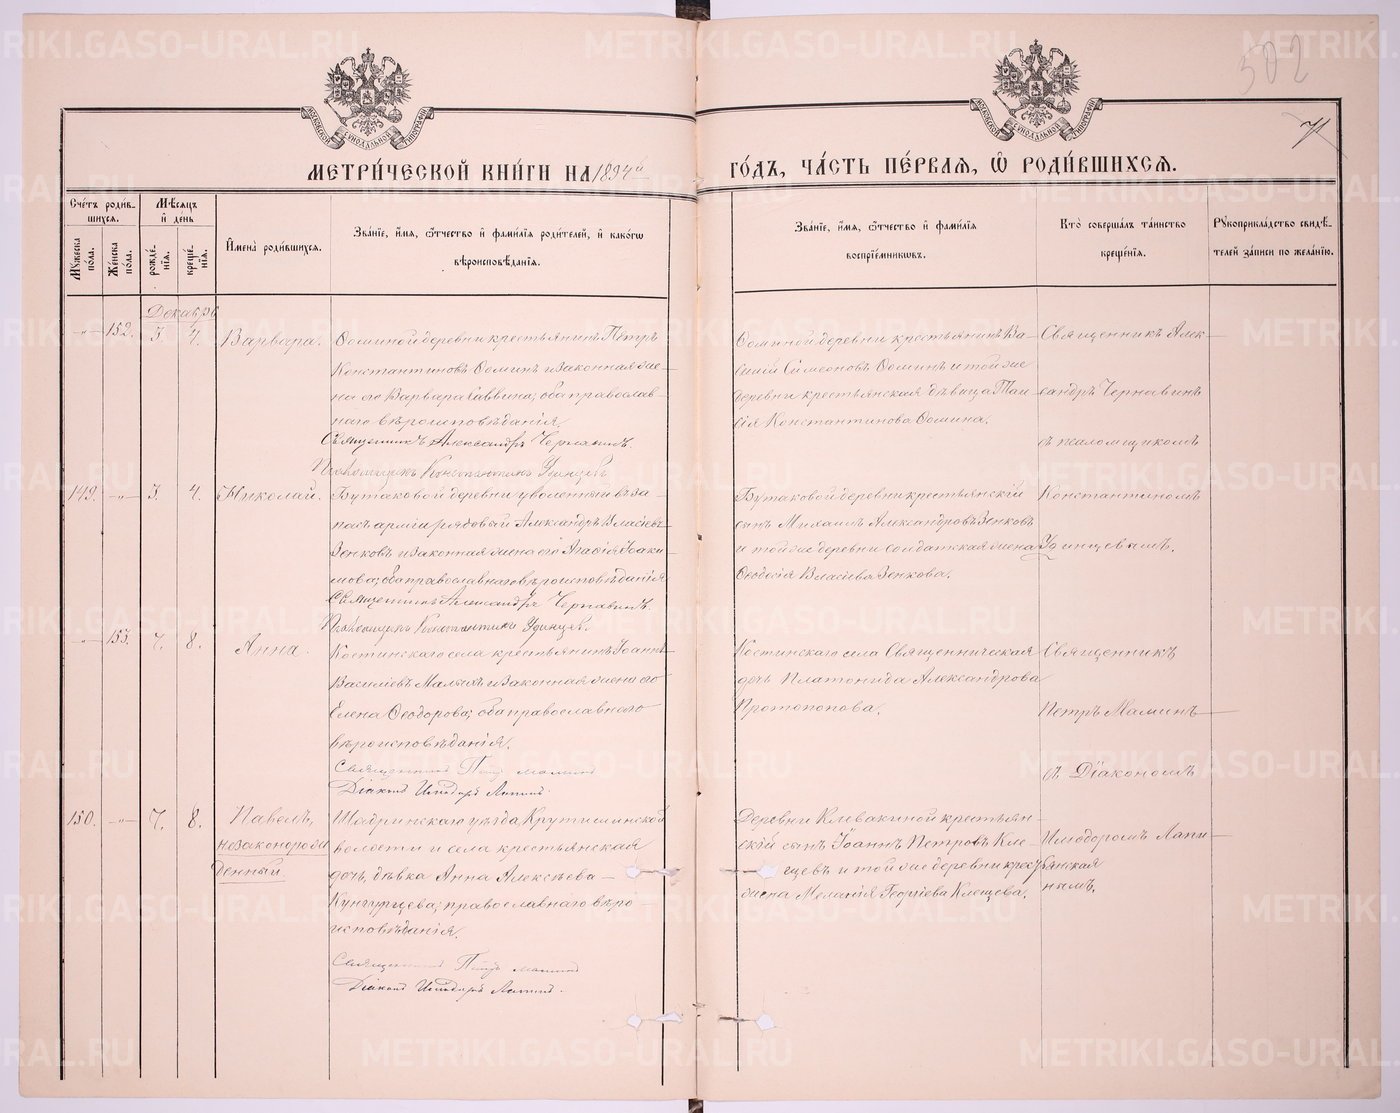 502
71
МЕТРИ́ЧЕСКОЙ КНИ́ГИ НА 1894й ГО́ДЪ, ЧА́СТЬ ПЕ́РВАЯ, Ѽ РОДИ́ВШИХСЯ.
Сче́тъ роди́в-
шихся.
Му́жеска по́ла.
Же́нска по́ла.
Мѣ́сяцъ
и҆ де́нь
рожде́-
нїя.
креще́-
нїя.
И҆мена̀ роди́вшихся.
Зва́нїе, и҆́мя, ѻ҆́тчество и҆ фами́лїя роди́телей, и҆ како́гѡ
вѣроисповѣ́данїя.
Зва́нїе, и҆́мя, ѻ҆́тчество и҆ фами́лїя
воспрїе́мникѡвъ.
Кто̀ соверша́лъ та́инство
креще́нїя.
Рꙋкоприкла́дство свидѣ́-
телей за́писи по жела́нїю.
Декабрь
-"- 152. 3. 4. Варвара.
Ѳоминой деревни крестьянинъ Петръ
Константиновъ Ѳоминъ и законная же-
на его Варвара Саввина; оба православ-
наго вѣроисповѣданія.
Священникъ Александръ Чернавинъ.
Псаломщикъ Константинъ Удинцевъ.
Ѳоминой деревни крестьянинъ Ва-
силій Симеоновъ Ѳоминъ и той же
деревни крестьянская дѣвица Таи
сія Константинова Ѳомина.
Священникъ Алек-
сандръ Чернавинъ
съ псаломщикомъ
149. -"- 3. 4. Николай.
Бутаковой деревни уволенный въ за-
пасъ арміи рядовый Александръ Власіевъ
Зенковъ и законная жена его Агафія Іоаки-
мова; оба православнаго вѣроисповѣданія.
Священникъ Александръ Чернавинъ.
Псаломщикъ Константинъ Удинцевъ.
Бутаковой деревни крестьянскій
сынъ Михаилъ Александровъ Зенковъ
и той же деревни солдатская жена
Ѳеодосія Власіева Зенкова.
Константиномъ
Удинцевымъ.
-"- 153. 7. 8. Анна.
Костинскаго села крестьянинъ Іоаннъ
Василіевъ Малыхъ и законная жена его
Елена Ѳеодорова; оба православнаго
вѣроисповѣданія.
Священникъ Петръ Маминъ
Діаконъ Иліодоръ Лапинъ.
Костинскаго села Священническая
дочь Платонида Александрова
Протопопова.
Священникъ
Петръ Маминъ
съ Діакономъ
150. -"- 7. 8. Павелъ,
незаконорож
денный.
Шадринскаго уѣзда, Крутихинской
волости и села крестьянская
дочь, дѣвка Анна Алексѣева
Кунгурцева; православнаго вѣро-
исповѣданія.
Священникъ Петръ Маминъ
Діаконъ Иліодоръ Лапинъ.
Деревни Клевакиной крестьян-
скій сынъ Іоаннъ Петровъ Кле-
щевъ и той же деревни крестьянская
жена Меланія Георгіева Клещева.
Иліодоромъ Лапи-
нымъ.
METRIKI.GASO-URAL.RU